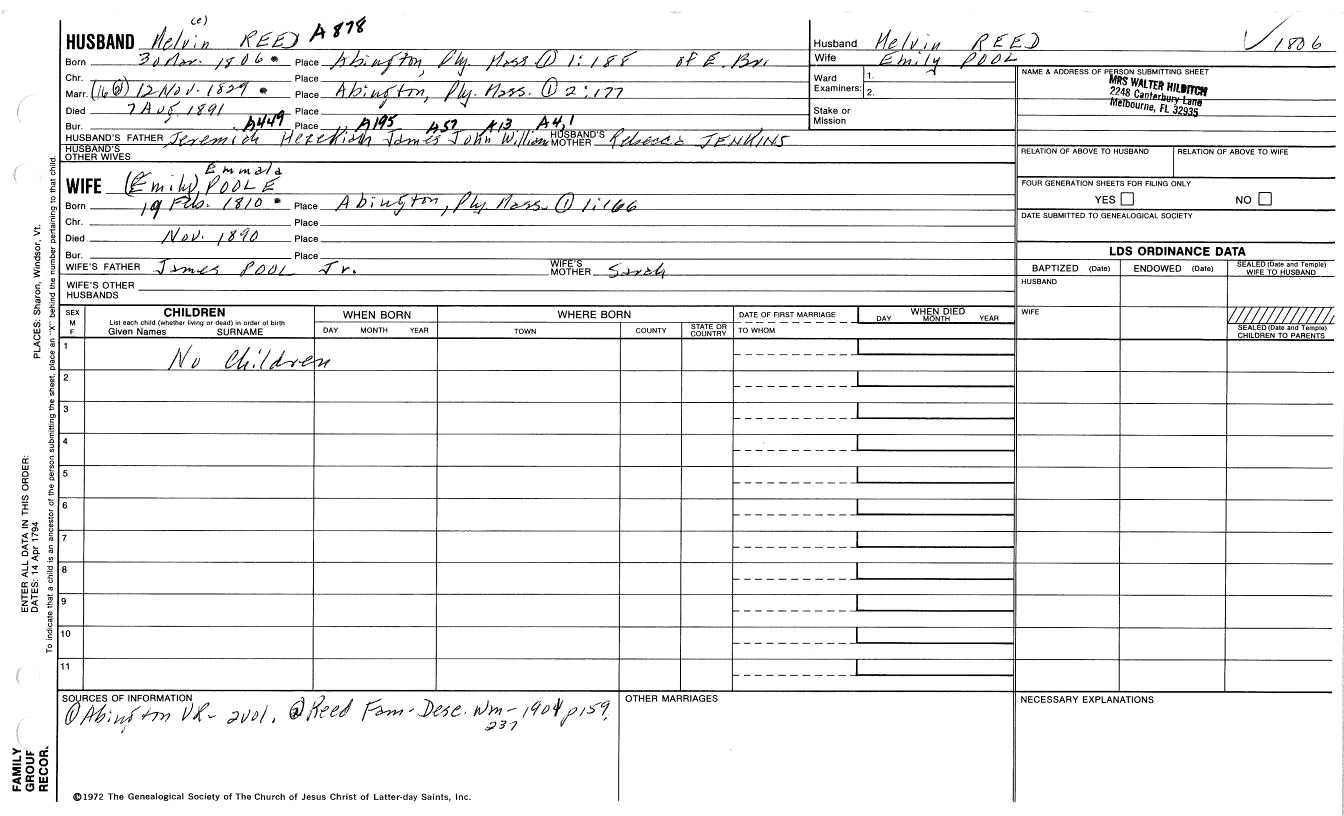 (e)
HUSBAND Melvin REED A878
Born 30 Mar. 1806 Place Abington, Ply. Mass ① 1:188 of E. Bri.
Chr. Place
Marr. (16②) 12 Nov. 1829 Place Abington, Ply. Mass. ① 2:177
Died 7 Aug 1891 Place
Bur. A449 Place A195 A57 A13 A4,1
HUSBAND'S FATHER Jeremiah Hezekiah James John William HUSBAND'S MOTHER Rebecca JENKINS
HUSBAND'S OTHER WIVES
Emmala
WIFE (Emily) POOLE
Born 19 Feb. 1810 Place Abington, Ply. Mass. ① 1:166
Chr. Place
Died Nov. 1890 Place
Bur. Place
WIFE'S FATHER James POOL Jr. WIFE'S MOTHER Sarah
WIFE'S OTHER HUSBANDS
Husband Melvin REED
Wife Emily POOL
Ward Examiners: 1.
2.
Stake or Mission
√1806
NAME & ADDRESS OF PERSON SUBMITTING SHEET
MRS WALTER HILDITCH
2248 Canterbury Lane
Melbourne, FL 32935
RELATION OF ABOVE TO HUSBAND RELATION OF ABOVE TO WIFE
FOUR GENERATION SHEETS FOR FILING ONLY
YES NO
DATE SUBMITTED TO GENEALOGICAL SOCIETY
LDS ORDINANCE DATA
BAPTIZED (Date) ENDOWED (Date) SEALED (Date and Temple) WIFE TO HUSBAND
HUSBAND
WIFE
SEALED (Date and Temple) CHILDREN TO PARENTS
SEX M F
CHILDREN
List each child (whether living or dead) in order of birth
Given Names SURNAME
WHEN BORN
DAY MONTH YEAR
WHERE BORN
TOWN COUNTY STATE OR COUNTRY
DATE OF FIRST MARRIAGE
TO WHOM
WHEN DIED
DAY MONTH YEAR
1 No Children
2
3
4
5
6
7
8
9
10
11
SOURCES OF INFORMATION
① Abington VR - 2vol. ② Reed Fam - Desc. Wm - 1904 p159,
237
OTHER MARRIAGES
NECESSARY EXPLANATIONS
©1972 The Genealogical Society of The Church of Jesus Christ of Latter-day Saints, Inc.
FAMILY GROUP RECOR.
ENTER ALL DATA IN THIS ORDER:
DATES: 14 Apr 1794
PLACES: Sharon, Windsor, Vt.
To indicate that a child is an ancestor of the person submitting the sheet, place an "X" behind the number pertaining to that child.